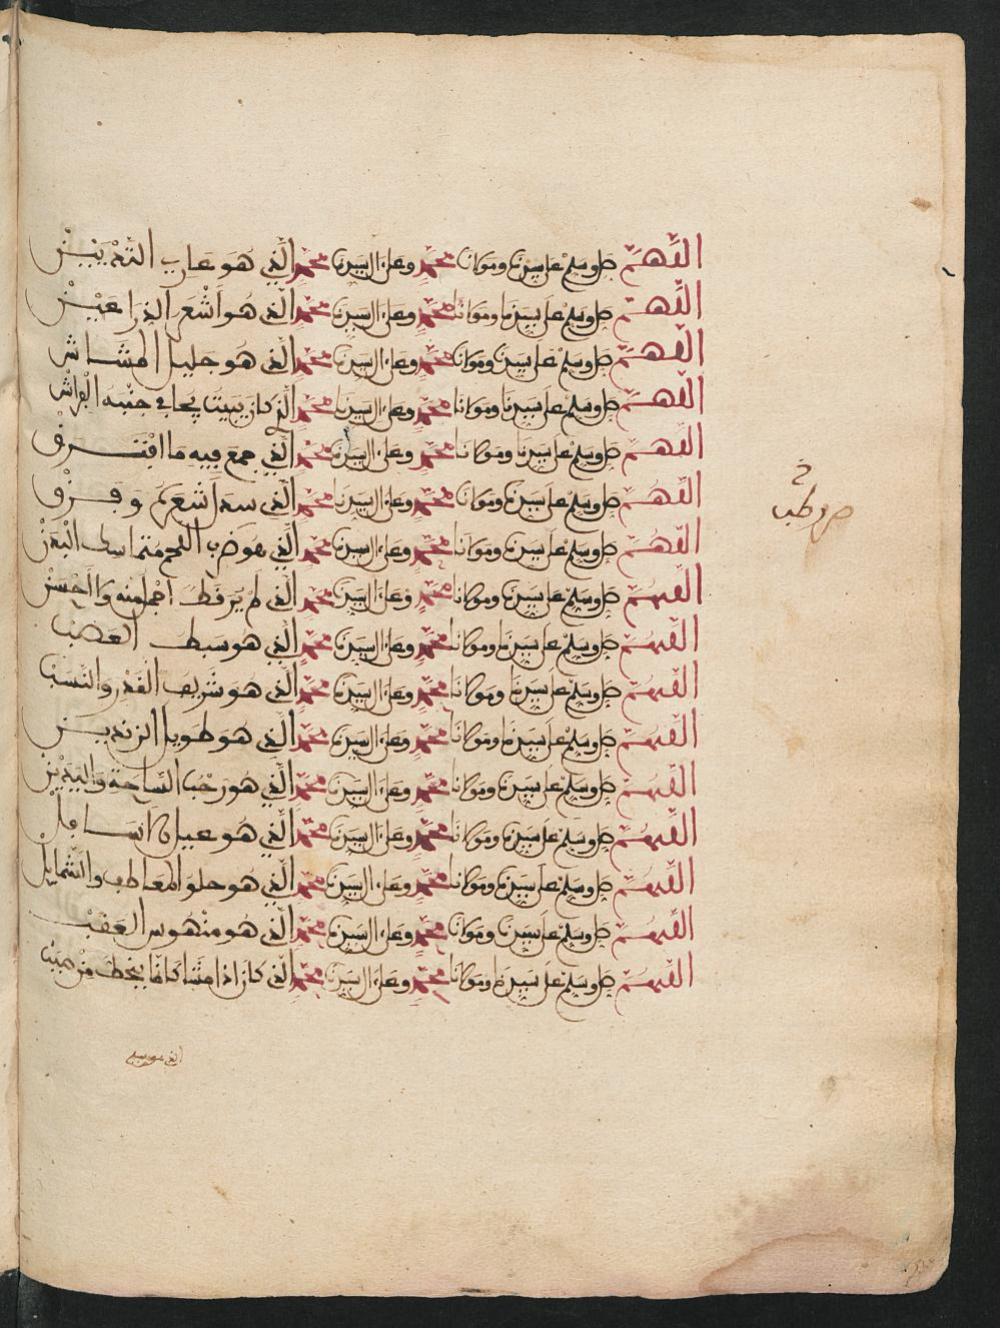 اللهم صل وسلم على سيدنا ومولانا محمد وعلى ءال سيدنا محمد الذي هو عاري الثديين
اللهم صل وسلم على سيدنا ومولانا محمد وعلى ءال سيدنا محمد الذي هو أشعر الذراعين
اللهم صل وسلم على سيدنا ومولانا محمد وعلى ءال سيدنا محمد الذي هو جليل المشاش
اللهم صل وسلم على سيدنا ومولانا محمد وعلى ءال سيدنا محمد الذي كان يبيت يجافي جنبه الفراش
اللهم صل وسلم على سيدنا ومولانا محمد وعلى ءال سيدنا محمد الذي جمع فيه ما افترق
اللهم صل وسلم على سيدنا ومولانا محمد وعلى ءال سيدنا محمد الذي سدل شعره وفرق
اللهم صل وسلم على سيدنا ومولانا محمد وعلى ءال سيدنا محمد الذي هو ضرب اللحم متماسك البدن
اللهم صل وسلم على سيدنا ومولانا محمد وعلى ءال سيدنا محمد الذي لم ير قط أجمل منه ولا أحسن
اللهم صل وسلم على سيدنا ومولانا محمد وعلى ءال سيدنا محمد الذي هو سبط العصب
اللهم صل وسلم على سيدنا ومولانا محمد وعلى ءال سيدنا محمد الذي هو شريف القدر والنسب
اللهم صل وسلم على سيدنا ومولانا محمد وعلى ءال سيدنا محمد الذي هو طويل الزندين
اللهم صل وسلم على سيدنا ومولانا محمد وعلى ءال سيدنا محمد الذي هو رحب الساحة واليدين
اللهم صل وسلم على سيدنا ومولانا محمد وعلى ءال سيدنا محمد الذي هو عبل الأسافل
اللهم صل وسلم على سيدنا ومولانا محمد وعلى ءال سيدنا محمد الذي هو حلو المعاطف والشمايل
اللهم صل وسلم على سيدنا ومولانا محمد وعلى ءال سيدنا محمد الذي هو منهوس العقب
اللهم صل وسلم على سيدنا ومولانا محمد وعلى ءال سيدنا محمد الذي كان اذا مشا كانما ينحط من صبب